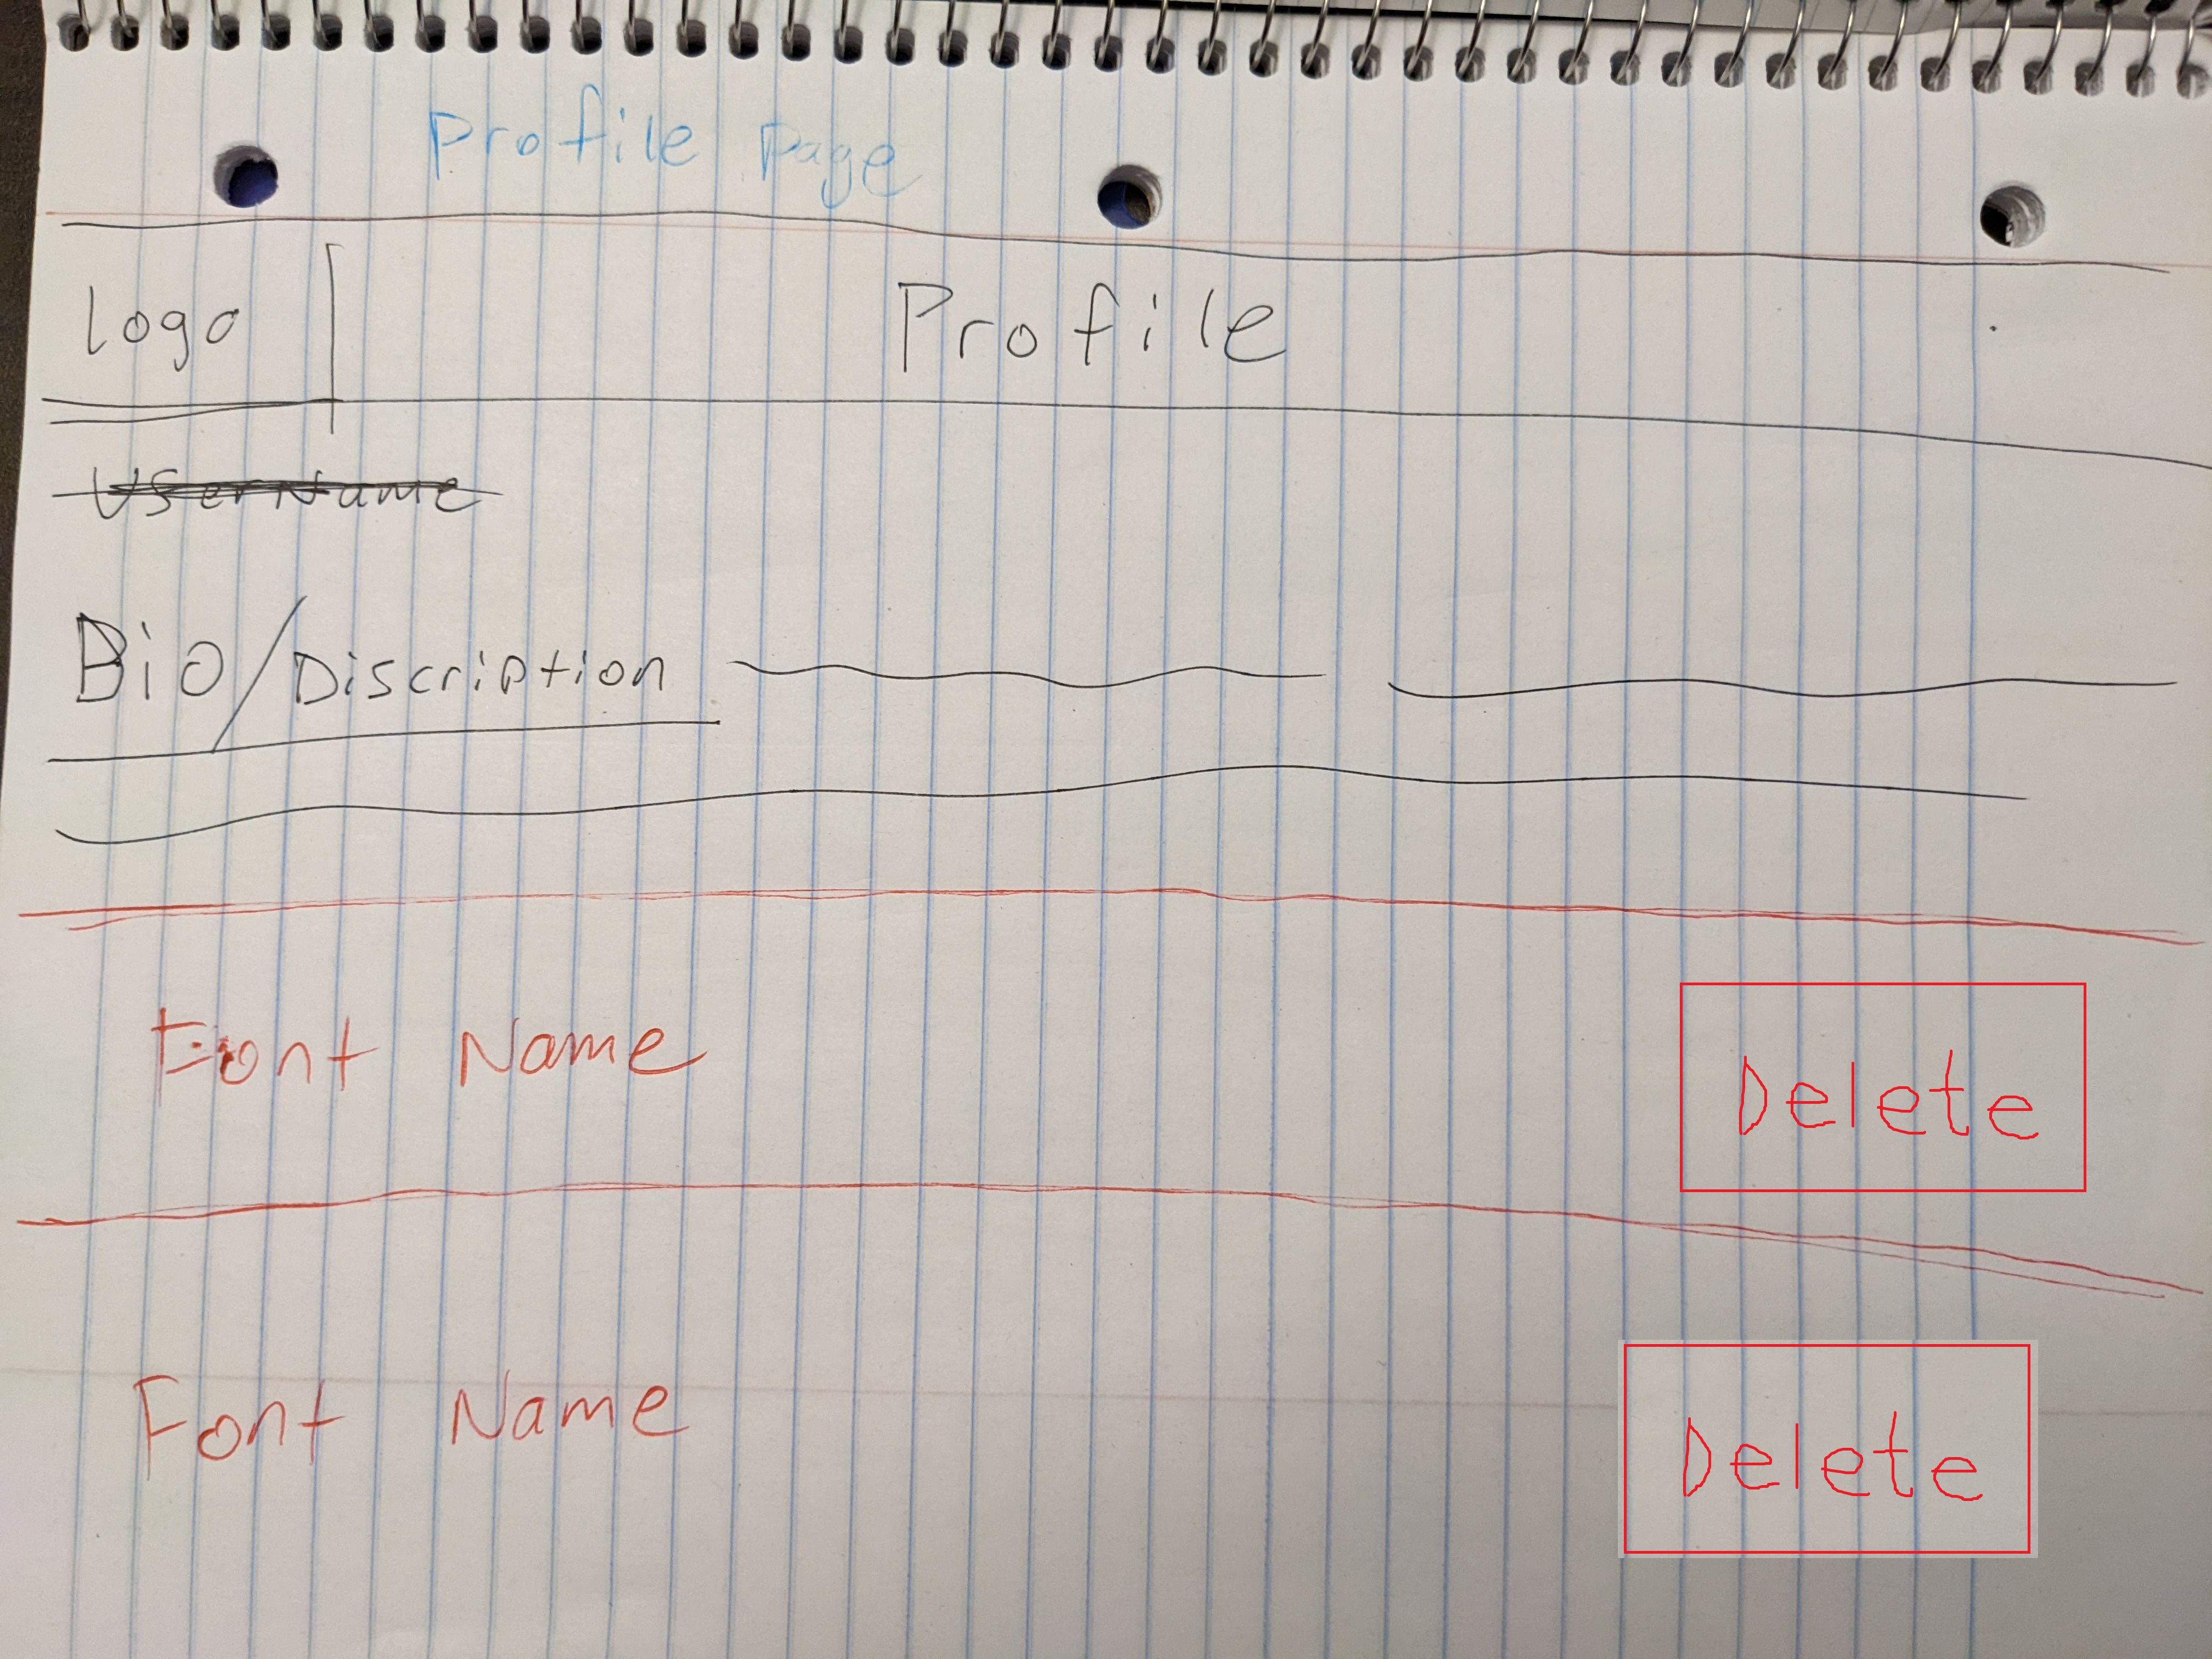 Profile Page
Logo Profile
UserName
Bio/Discription
Font Name
Delete
Font Name
Delete